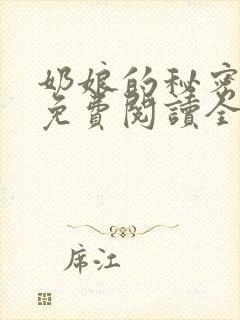 奶娘的秘密
免費閱讀全
席江